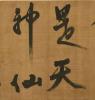 是天
神仙